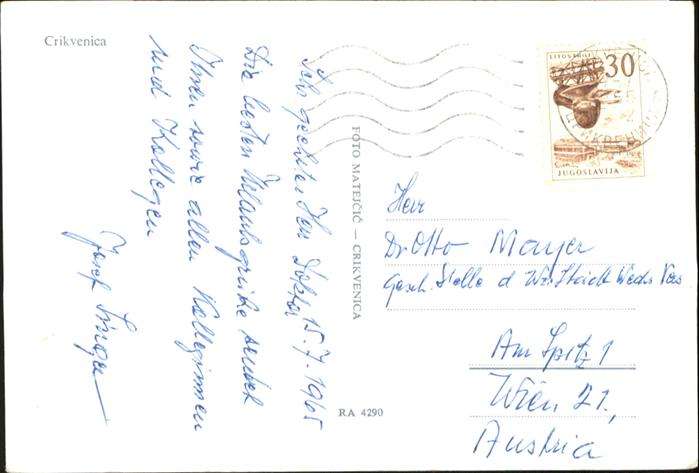 Crikvenica
Sehr geehrter Herr Doktor 15.7.1965
Die besten Urlaubsgrüße sendet
Ihnen sowie allen Kolleginnen
und Kollegen
Josef
FOTO MATEJČIĆ — CRIKVENICA
RA 4290
30
JUGOSLAVIJA
Herr
Dr Otto Mayer
Gesch. Stelle d
Am Spitz 1
Wien 21,
Austria